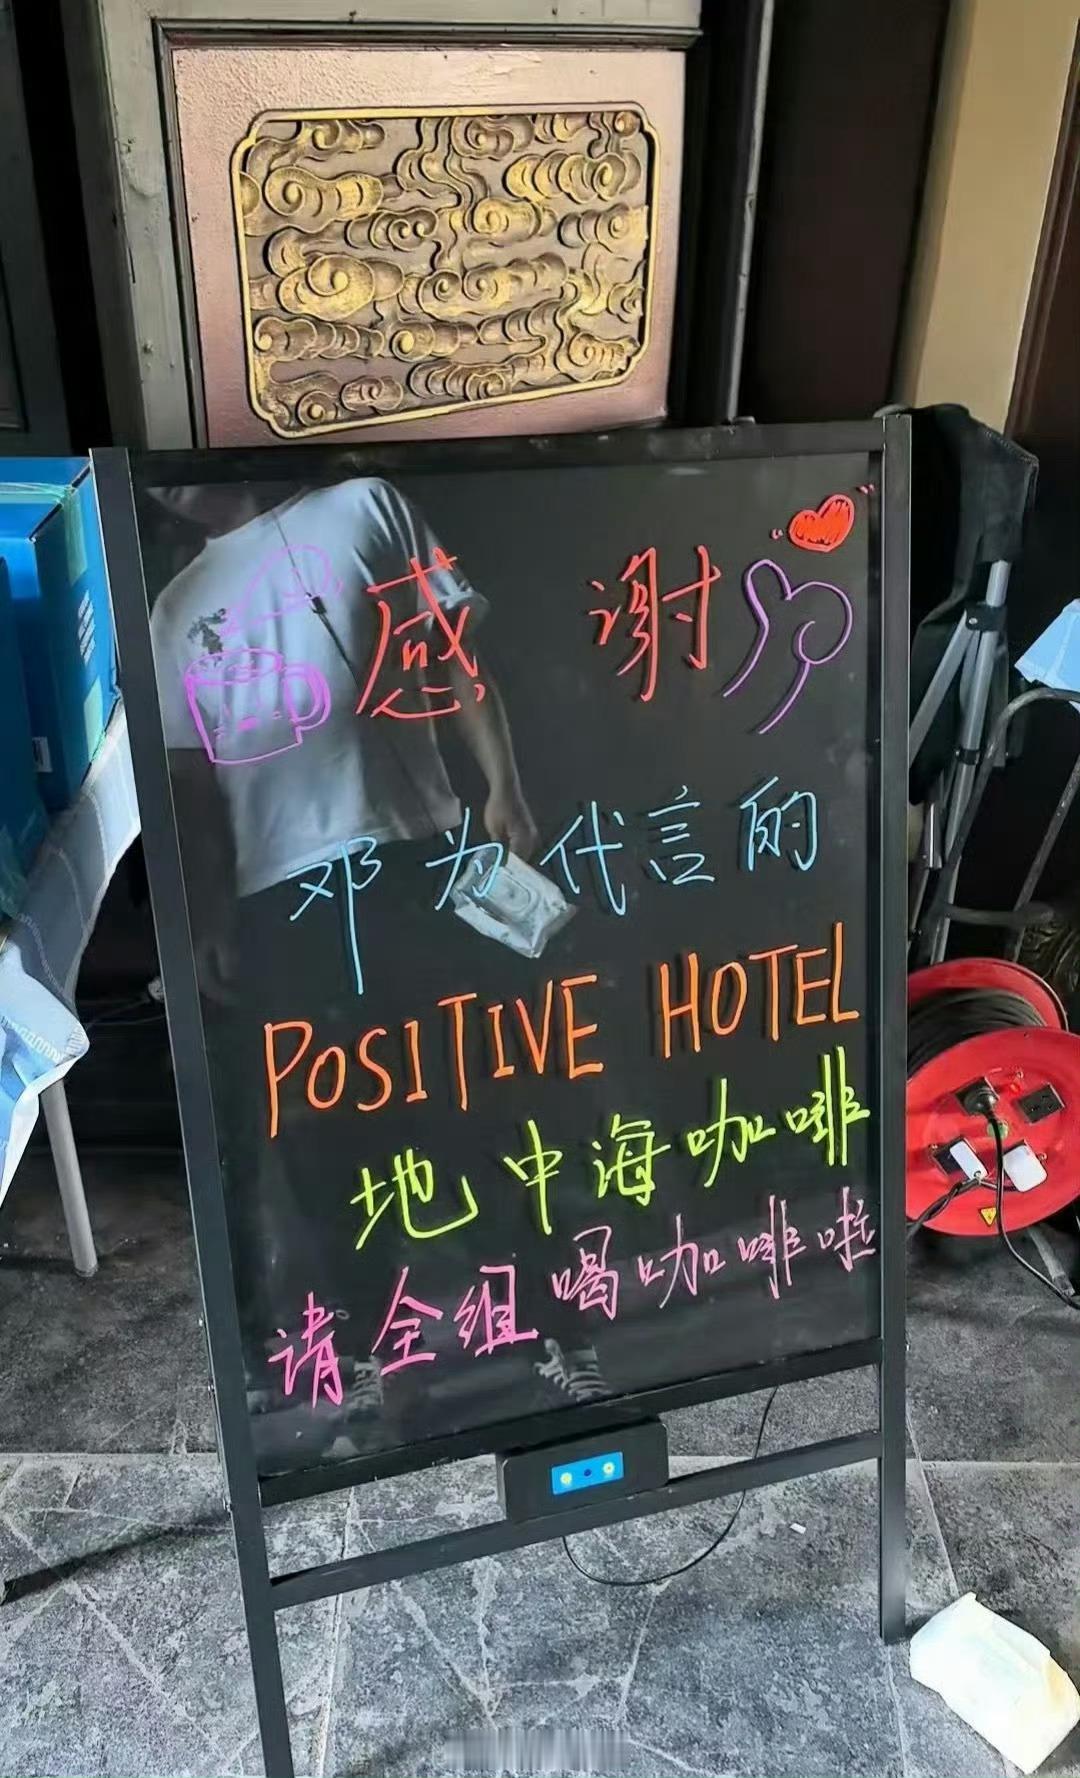 感谢
邓为代言的
POSITIVE HOTEL
地中海咖啡
请全组喝咖啡啦